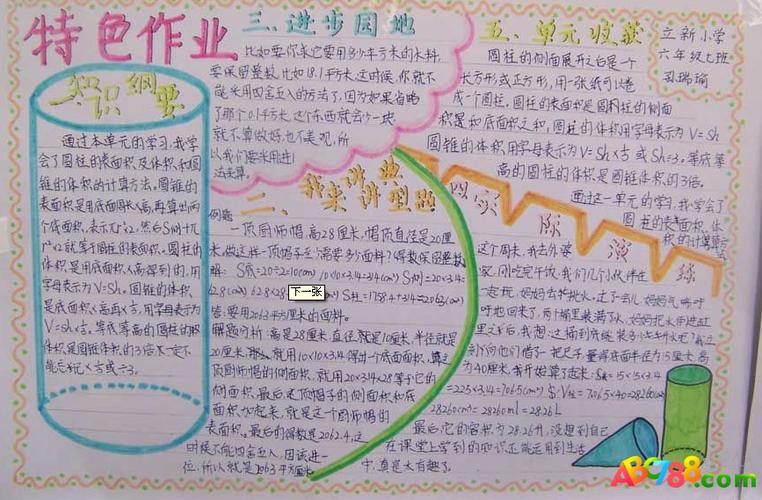 特色作业
知识纲要
通过本单元的学习,我学
会了圆柱的表面积及体积和圆
锥的体积的计算方法。圆锥的
表面积是用底面周长×高,再算出两
个底面积,表示
就等于圆柱的表面积。圆柱的
体积,是用底面积×高得到的,用
字母表示为V=Sh。圆锥的体积,
是底面积×高再×⅓,用字母表示为
V=Sh×⅓。等底等高的圆柱的
体积是圆锥体积的3倍,一定不
能忘记×⅓或÷3。
三、进步园地
比如要你求它要用多少平方米的木料,
要保留整数,比如18.1平方米,这时候,你就不
能采用四舍五入的方法了,因为如果省略
了那个0.1平方米,这个东西就会少一块,
就不算做好,也不美观,所
以我们要采用进
一法来算。
二、我来讲讲典型题
例题
一顶厨师帽,高28厘米,帽顶直径是20厘
米,做这样一顶帽子至少需要多少面料?(得数保留整数)
解: S底=20÷2=10(cm) 10×10×3.14=314(cm²) S侧=20×3.14=
62.8(cm) 62.8×28
下一张
S柱=1758.4+314≈2063(cm²)
答:要用2063平方厘米的面料。
解题分析:高是28厘米,直径就是10厘米,半径就是
20厘米,那么,就用10×10×3.14得出个底面面积,算这
顶厨师帽的侧面积,就用20×3.14×28等于它的
侧面积,最后是顶帽子的侧面积和底
面积加起来,就是这个厨师帽的
表面积。最后的得数是2062.4,这
时候不能四舍五入,因该进一
位,所以就是2063平方厘米
五、单元收获
圆柱的侧面展开之后是一个
长方形或正方形,用一张纸可以卷
成一个圆柱,圆柱的表面积是圆柱的侧面
积和底面积之和,圆柱的体积用字母表示为V=Sh
圆锥的体积用字母表示为V=Sh×⅓或Sh÷3。等底等
高的圆柱的体积是圆锥体积的3倍。
通过这一单元的学习,我学会了
圆柱的表面积、体
积的计算方
立新小学
六年级七班
四、实际演练
这个周末,我去外婆
家,刚吃完午饭,我们几个小伙伴在
一起玩,妈妈去挑水,过了一会儿,妈妈气呼呼
吁地回来了,两个桶里装满了水,妈妈把水倒进缸
里之后,我想:这桶到底能装多少升水呢?我立
刻向他们借了一把尺子,量得底面半径为15厘米,高
为40厘米,我开始算起来:S底=15×15×3.14
=225×3.14=706.5(cm²) V柱=706.5×40=28260(cm³)
28260cm³=28260ml=28.26L
最后,它的容积为28.26升,没想到自己
在课堂上学到的知识还能运用到生活
中,真是太有趣了。
ABC788.com